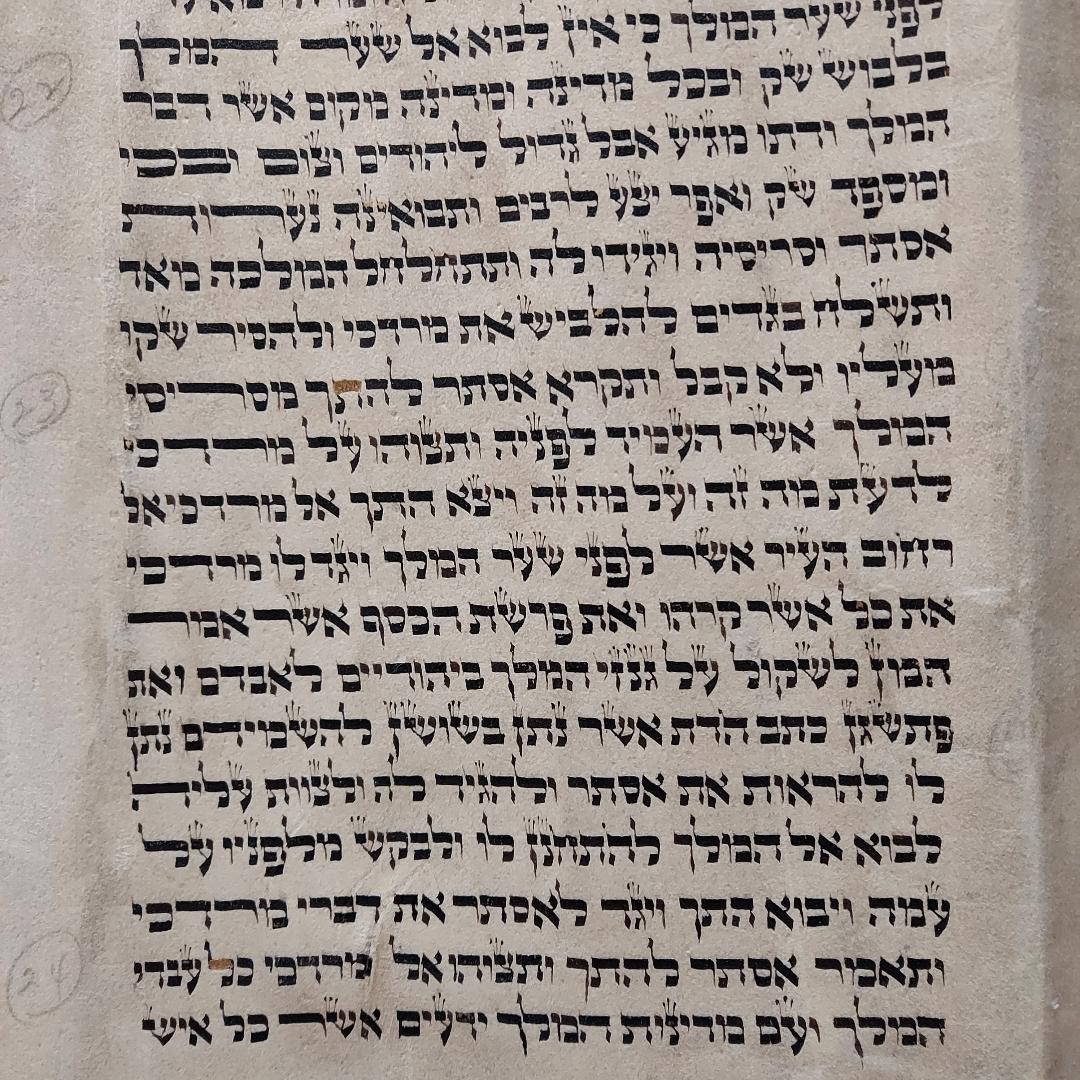 לפני שער המלך כי אין לבוא אל שער המלך
בלבוש שק ובכל מדינה ומדינה מקום אשר דבר
המלך ודתו מגיע אבל גדול ליהודים וצום ובכי
ומספד שק ואפר יצע לרבים ותבואינה נערות
אסתר וסריסיה ויגידו לה ותתחלחל המלכה מאד
ותשלח בגדים להלביש את מרדכי ולהסיר שקו
מעליו ולא קבל ותקרא אסתר להתך מסריסי
המלך אשר העמיד לפניה ותצוהו על מרדכי
לדעת מה זה ועל מה זה ויצא התך אל מרדכי אל
רחוב העיר אשר לפני שער המלך ויגד לו מרדכי
את כל אשר קרהו ואת פרשת הכסף אשר אמר
המן לשקול על גנזי המלך ביהודיים לאבדם ואת
פתשגן כתב הדת אשר נתן בשושן להשמידם נתן
לו להראות את אסתר ולהגיד לה ולצוות עליה
לבוא אל המלך להתחנן לו ולבקש מלפניו על
עמה ויבוא התך ויגד לאסתר את דברי מרדכי
ותאמר אסתר להתך ותצוהו אל מרדכי כל עבדי
המלך ועם מדינות המלך ידעים אשר כל איש
22
23
24